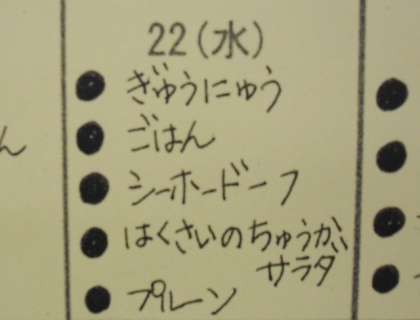 22(水)
ぎゅうにゅう
ごはん
ん
シーホードーフ
はくさいのちゅうか
サラダ
プレーン